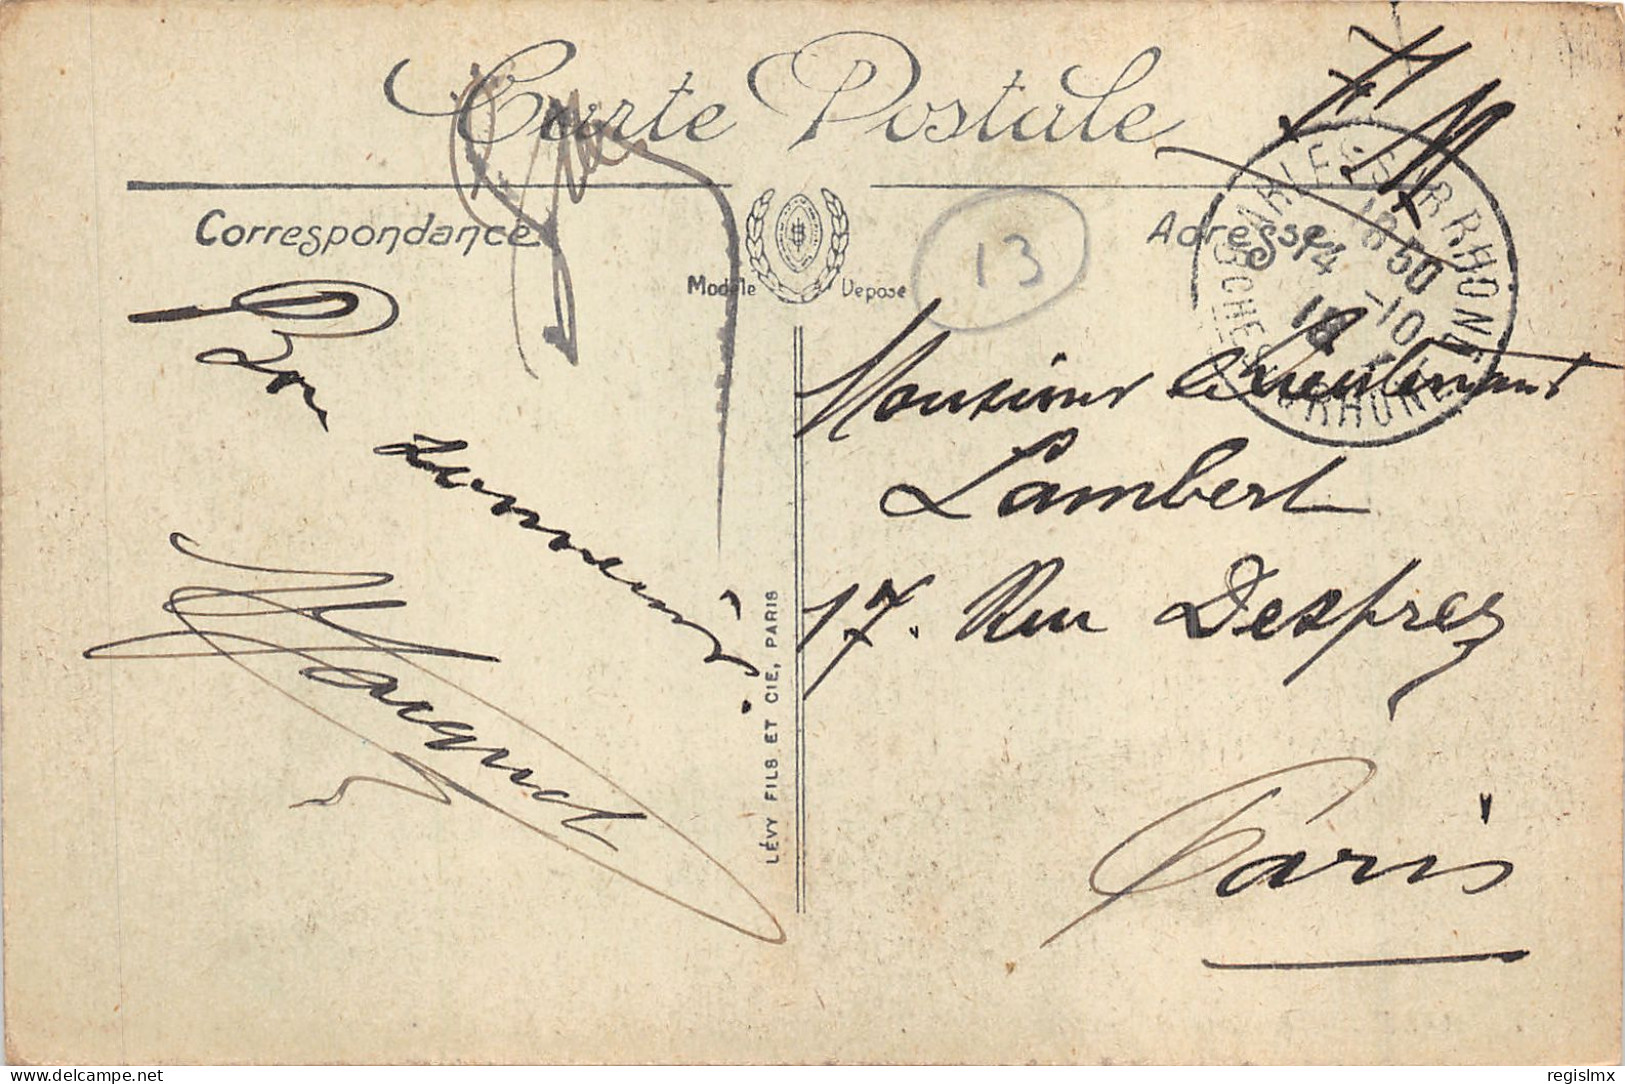 Carte Postale
F M
Correspondance
Adresse
Modèle Déposé
13
ARLES-S-RHONE
18 50
14 -10
BCHES DU RHONE
Bon
souvenir.
LÉVY FILS ET CIE, PARIS
Monsieur le Lieutenant
Lambert
17. Rue Desprez
Paris
delcampe.net
regislmx